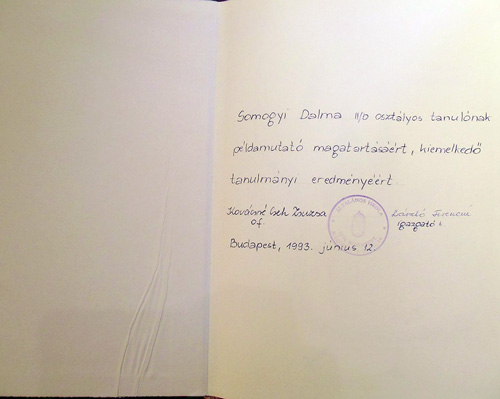 Somogyi Dalma II/o osztályos tanulónak
példamutató magatartásáért, kiemelkedő
tanulmányi eredményéért.
Kovácsné Cseh Zsuzsa
of.
László Ferencné
igazgató
Budapest, 1993. június 12.